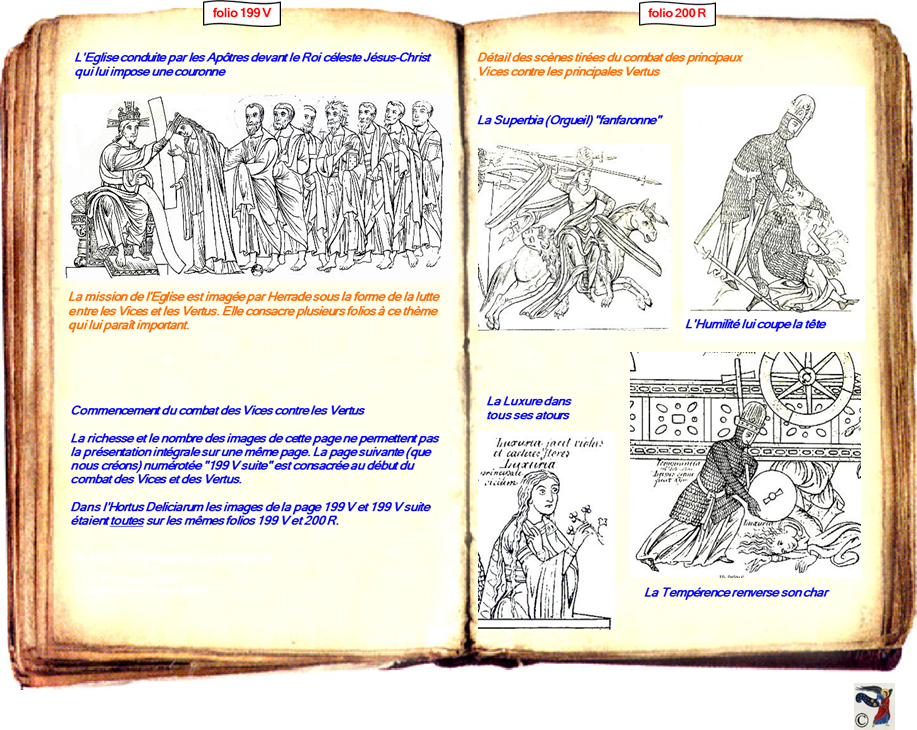 folio 199 V
L'Eglise conduite par les Apôtres devant le Roi céleste Jésus-Christ
qui lui impose une couronne
La mission de l'Eglise est imagée par Herrade sous la forme de la lutte
entre les Vices et les Vertus. Elle consacre plusieurs folios à ce thème
qui lui paraît important.
Commencement du combat des Vices contre les Vertus
La richesse et le nombre des images de cette page ne permettent pas
la présentation intégrale sur une même page. La page suivante (que
nous créons) numérotée "199 V suite" est consacrée au début du
combat des Vices et des Vertus.
Dans l'Hortus Deliciarum les images de la page 199 V et 199 V suite
étaient toutes sur les mêmes folios 199 V et 200 R.
folio 200 R
Détail des scènes tirées du combat des principaux
Vices contre les principales Vertus
La Superbia (Orgueil) "fanfaronne"
L'Humilité lui coupe la tête
La Luxure dans
tous ses atours
Luxuria jacit violas
et caeteros flores
Luxuria
principale
vicium
Luxuria
La Tempérence renverse son char
©